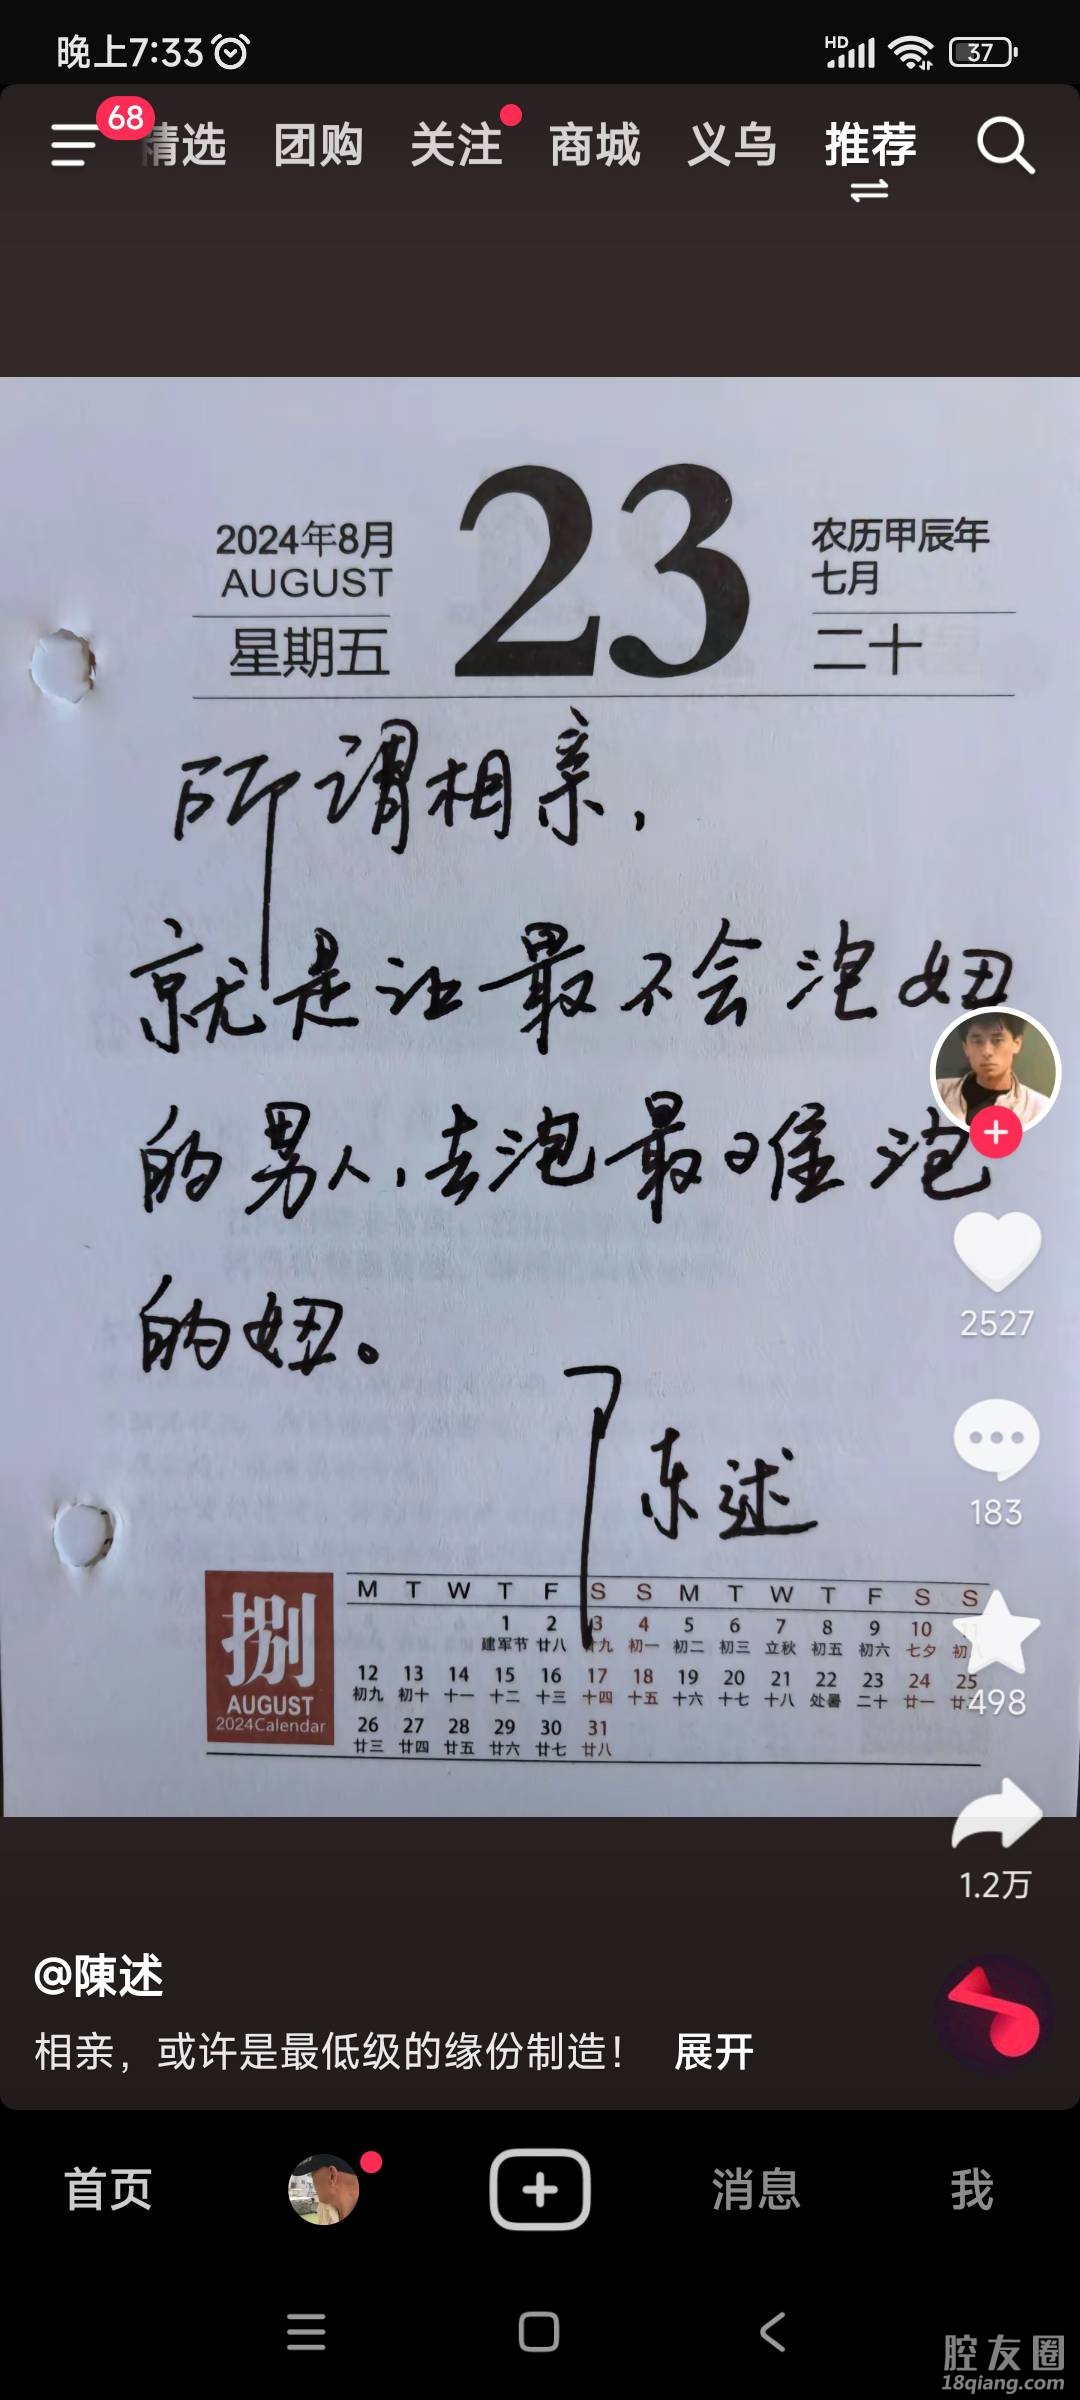 晚上7:33
HD
37
68
精选 团购 关注 商城 义乌 推荐
2024年8月
AUGUST
星期五
23
农历甲辰年
七月
二十
所谓相亲，
就是让最不会泡妞
的男人，去泡最难泡
的妞。
陈述
捌
AUGUST
2024Calendar
M T W T F S S M T W T F S S
1 2 3 4 5 6 7 8 9 10 11
建军节 廿八 廿九 初一 初二 初三 立秋 初五 初六 七夕 初
12 13 14 15 16 17 18 19 20 21 22 23 24 25
初九 初十 十一 十二 十三 十四 十五 十六 十七 十八 处暑 二十 廿一 廿
26 27 28 29 30 31
廿三 廿四 廿五 廿六 廿七 廿八
2527
183
498
1.2万
@陳述
相亲，或许是最低级的缘份制造！ 展开
首页 消息 我
腔友圈
18qiang.com